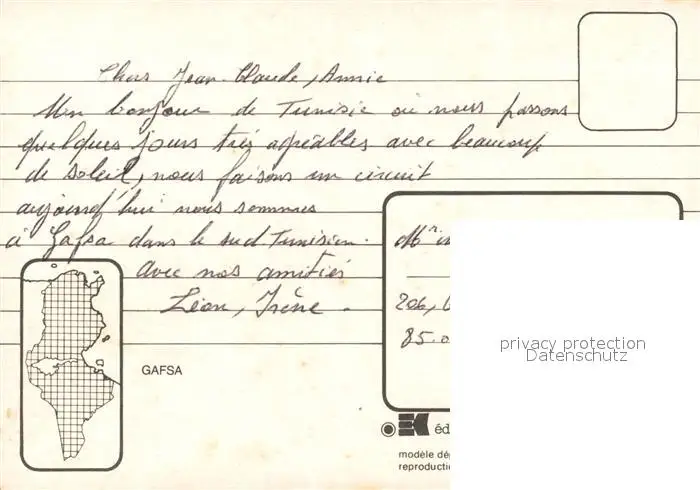 Chers Jean-Claude, Annie
Un bonjour de Tunisie où nous passons
quelques jours très agréables avec beaucoup
de soleil, nous faisons un circuit
aujourd'hui nous sommes
à Gafsa dans le sud Tunisien.
avec nos amitiés
Léon, Irène.
Mr
206,
85.0
GAFSA
privacy protection
Datenschutz
éd
modèle dé
reproducti